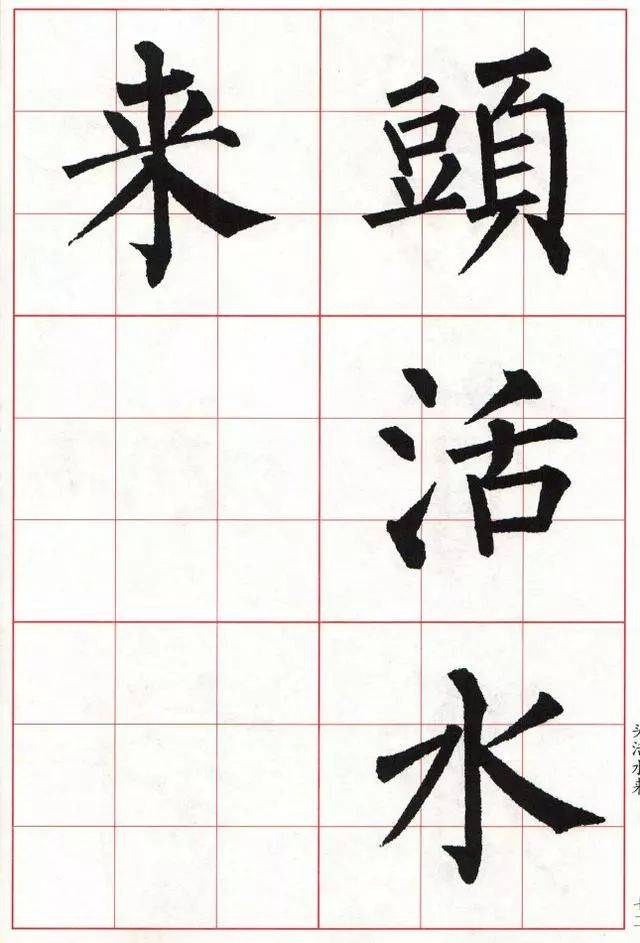 頭活水
来
头活水来
十二